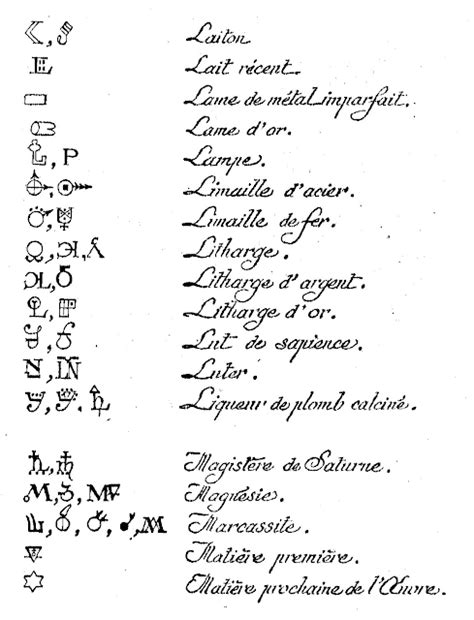 Laiton.
Lait récent.
Lame de métal imparfait.
Lame d'or.
P Lampe.
Limaille d'acier.
Limaille de fer.
Litharge.
Litharge d'argent.
Litharge d'or.
Lut de sapience.
Luter.
Liqueur de plomb calciné.
Magistère de Saturne.
Magnésie.
Marcassite.
Matière première.
Matière prochaine de l'Œuvre.